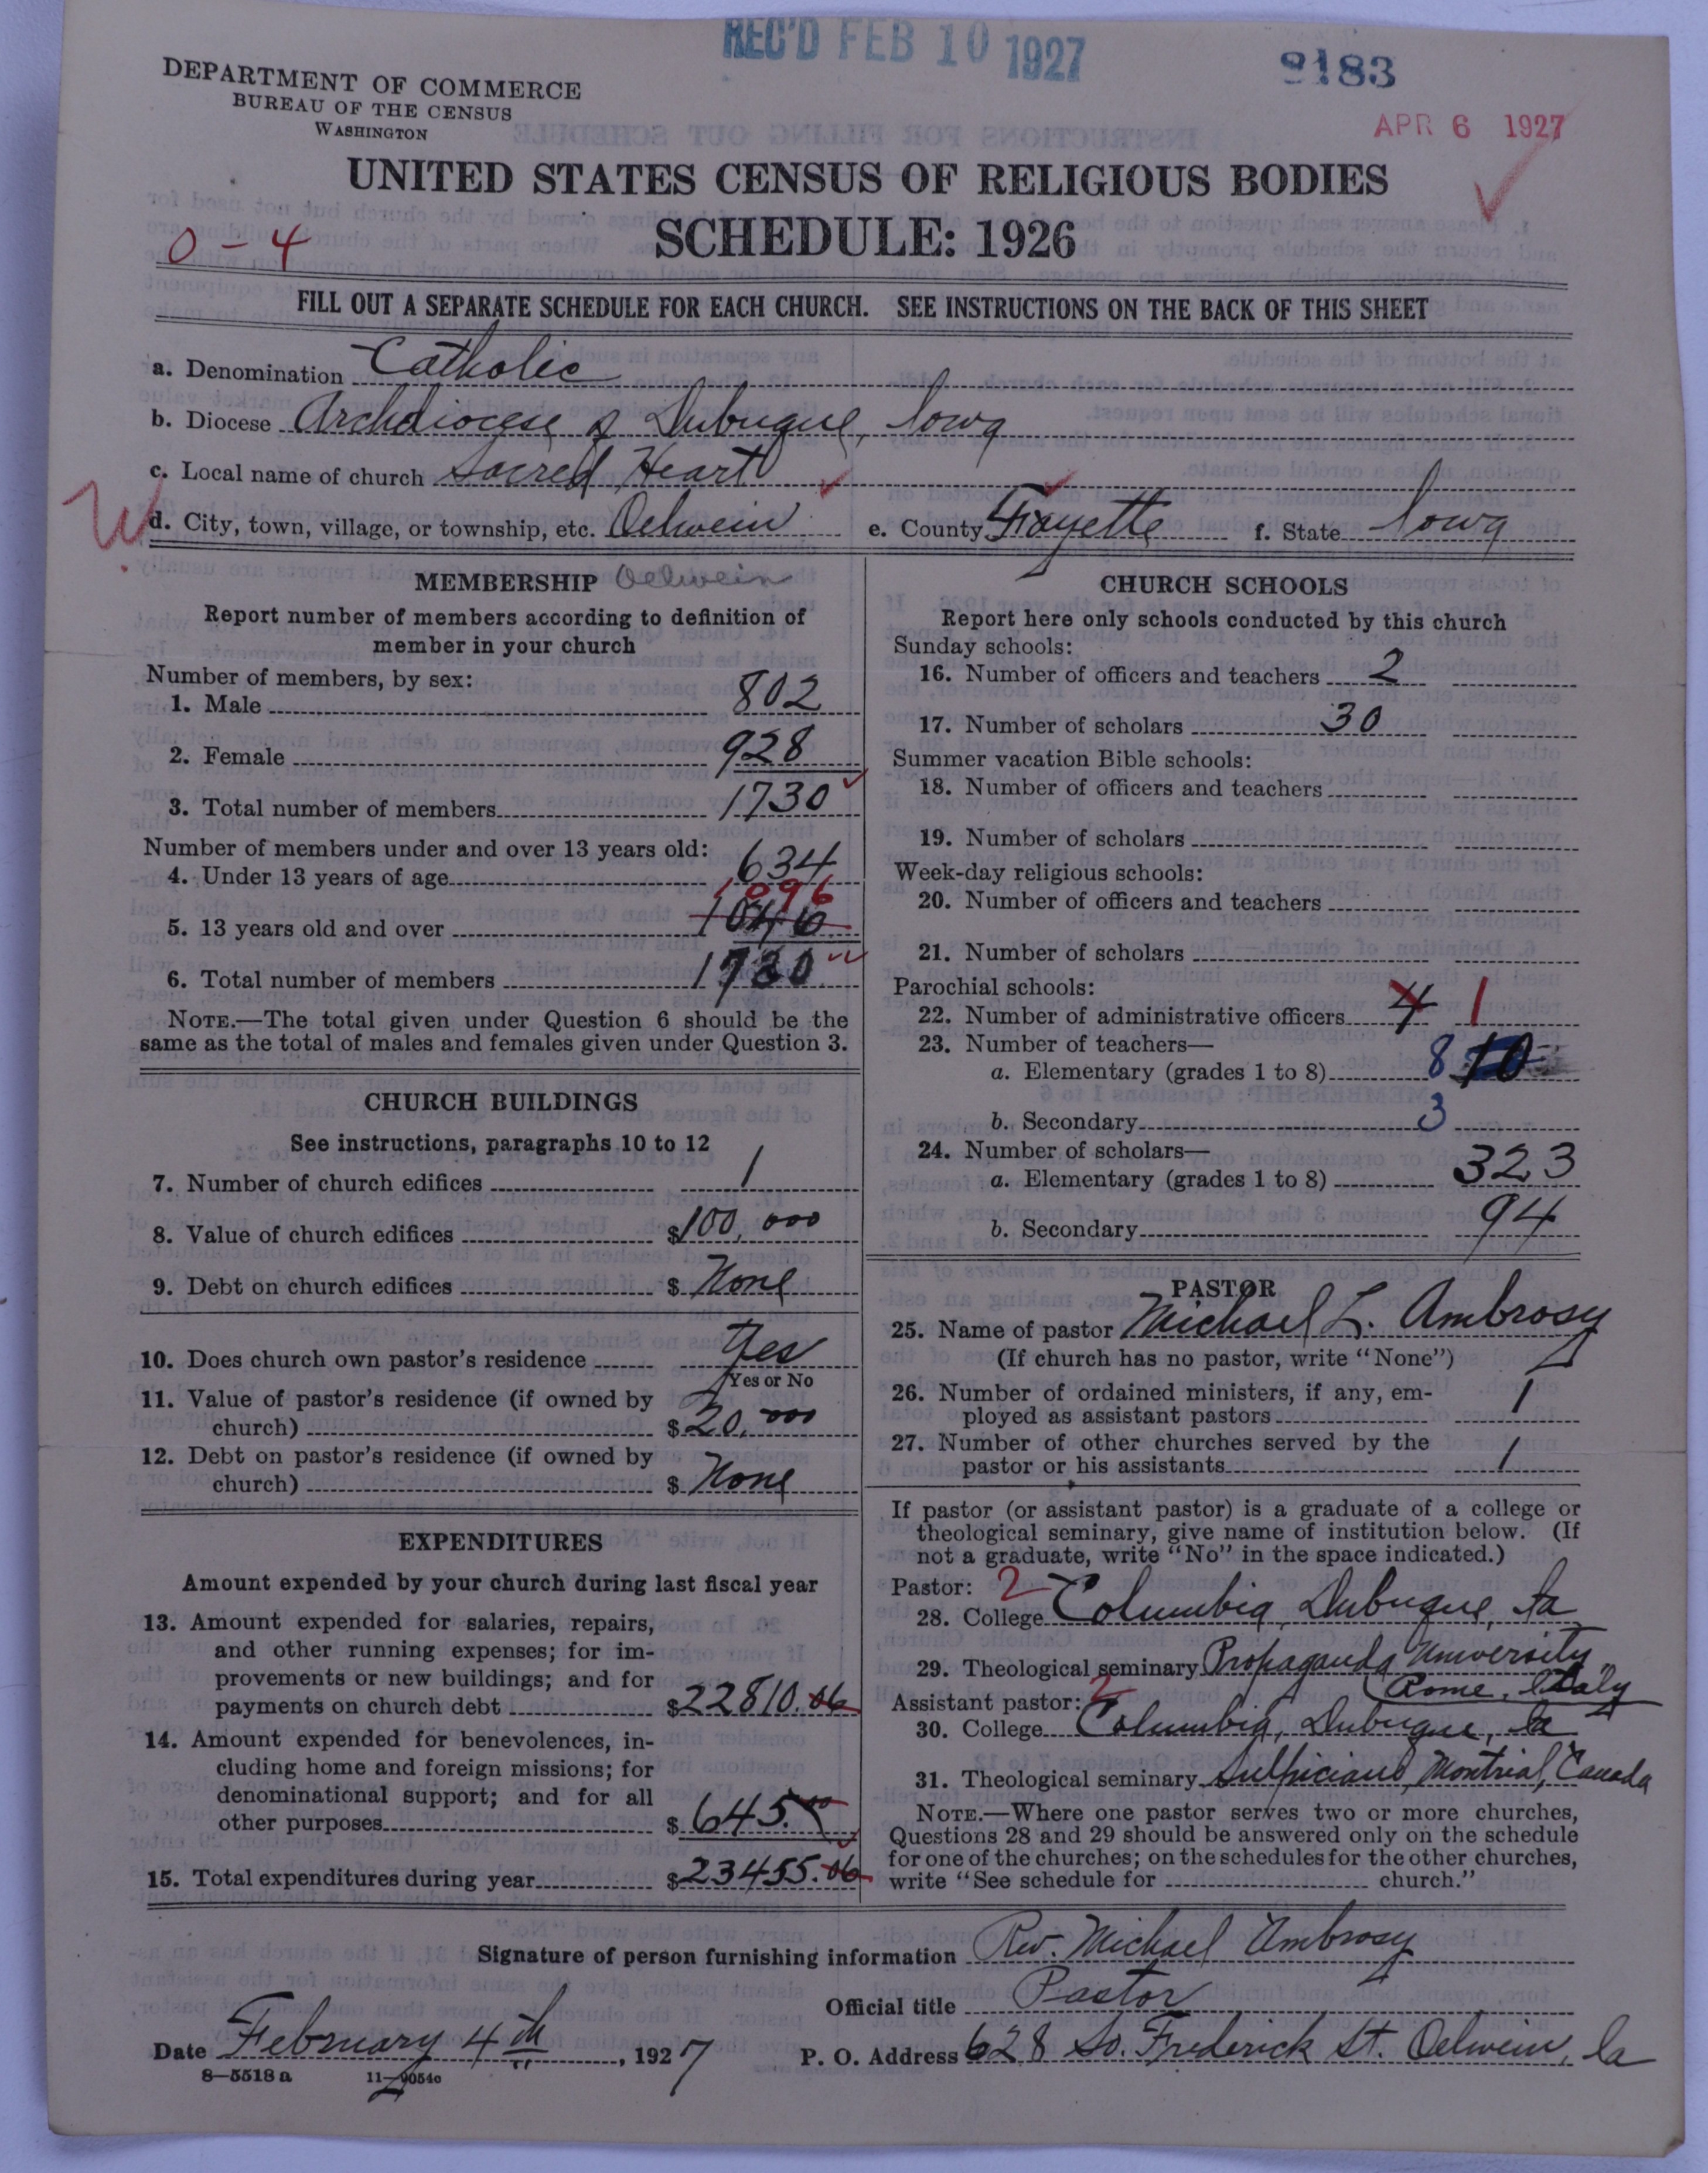 REC'D FEB 10 1927
9183
APR 6 1927
DEPARTMENT OF COMMERCE
BUREAU OF THE CENSUS
WASHINGTON
UNITED STATES CENSUS OF RELIGIOUS BODIES
SCHEDULE: 1926
0-4
FILL OUT A SEPARATE SCHEDULE FOR EACH CHURCH. SEE INSTRUCTIONS ON THE BACK OF THIS SHEET
a. Denomination Catholic
b. Diocese Archdiocese of Dubuque, Iowa
c. Local name of church Sacred Heart
d. City, town, village, or township, etc. Oelwein e. County Fayette f. State Iowa
MEMBERSHIP Oelwein
Report number of members according to definition of
member in your church
Number of members, by sex:
1. Male 802
2. Female 928
3. Total number of members 1730
Number of members under and over 13 years old:
4. Under 13 years of age 634
1096
5. 13 years old and over 1046
6. Total number of members 1730
NOTE.—The total given under Question 6 should be the
same as the total of males and females given under Question 3.
CHURCH BUILDINGS
See instructions, paragraphs 10 to 12
7. Number of church edifices 1
8. Value of church edifices $100,000
9. Debt on church edifices $ None
10. Does church own pastor's residence Yes
Yes or No
11. Value of pastor's residence (if owned by
church) $20,000
12. Debt on pastor's residence (if owned by
church) $ None
EXPENDITURES
Amount expended by your church during last fiscal year
13. Amount expended for salaries, repairs,
and other running expenses; for im-
provements or new buildings; and for
payments on church debt $22810.06
14. Amount expended for benevolences, in-
cluding home and foreign missions; for
denominational support; and for all
other purposes $645.00
15. Total expenditures during year $23455.06
CHURCH SCHOOLS
Report here only schools conducted by this church
Sunday schools:
16. Number of officers and teachers 2
17. Number of scholars 30
Summer vacation Bible schools:
18. Number of officers and teachers
19. Number of scholars
Week-day religious schools:
20. Number of officers and teachers
21. Number of scholars
Parochial schools:
22. Number of administrative officers 4 1
23. Number of teachers—
a. Elementary (grades 1 to 8) 8 10
b. Secondary 3
24. Number of scholars—
a. Elementary (grades 1 to 8) 323
b. Secondary 94
PASTOR
25. Name of pastor Michael L. Ambrosy
(If church has no pastor, write "None")
26. Number of ordained ministers, if any, em-
ployed as assistant pastors 1
27. Number of other churches served by the
pastor or his assistants 1
If pastor (or assistant pastor) is a graduate of a college or
theological seminary, give name of institution below. (If
not a graduate, write "No" in the space indicated.)
Pastor: 2
28. College Columbia, Dubuque, Ia
29. Theological seminary Propaganda University
Rome, Italy
Assistant pastor: 2
30. College Columbia, Dubuque, Ia
31. Theological seminary Sulpicians, Montrial, Canada
NOTE.—Where one pastor serves two or more churches,
Questions 28 and 29 should be answered only on the schedule
for one of the churches; on the schedules for the other churches,
write "See schedule for church."
Signature of person furnishing information Rev. Michael Ambrosy
Official title Pastor
Date February 4th, 1927 P. O. Address 628 So. Frederick St. Oelwein, Ia
8—5518a 11—9054c